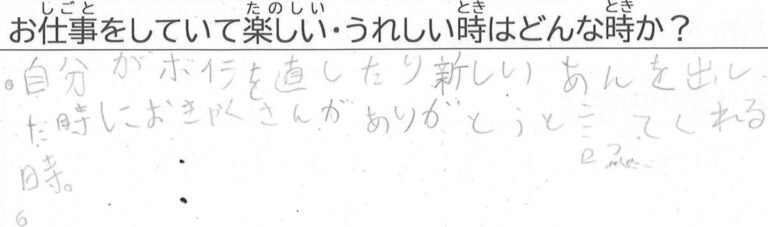 お仕事をしていて楽しい・うれしい時はどんな時か？
自分がホイラを直したり新しいあんを出し
た時におきゃくさんがありがとうと言ってくれる
時。
6